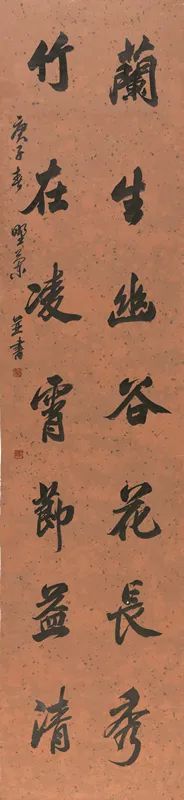 蘭生幽谷花長秀
竹在凌霄節益清
庚子春
書